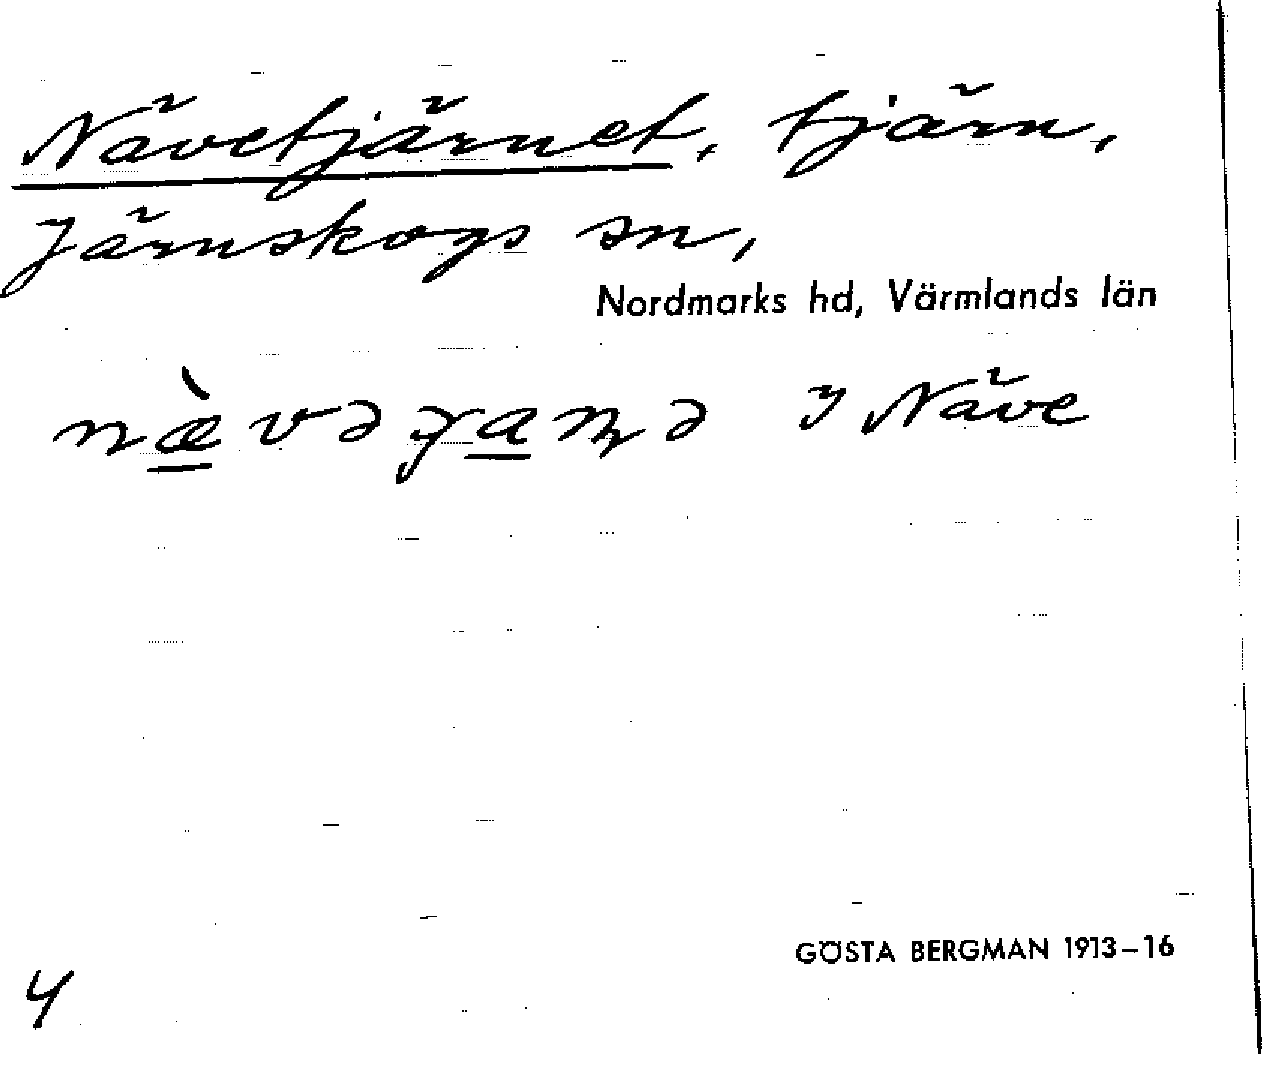 Nävetjärnet, tjärn,
Järnskogs sn,
Nordmarks hd, Värmlands län
I Näve
GÖSTA BERGMAN 1913–16
4